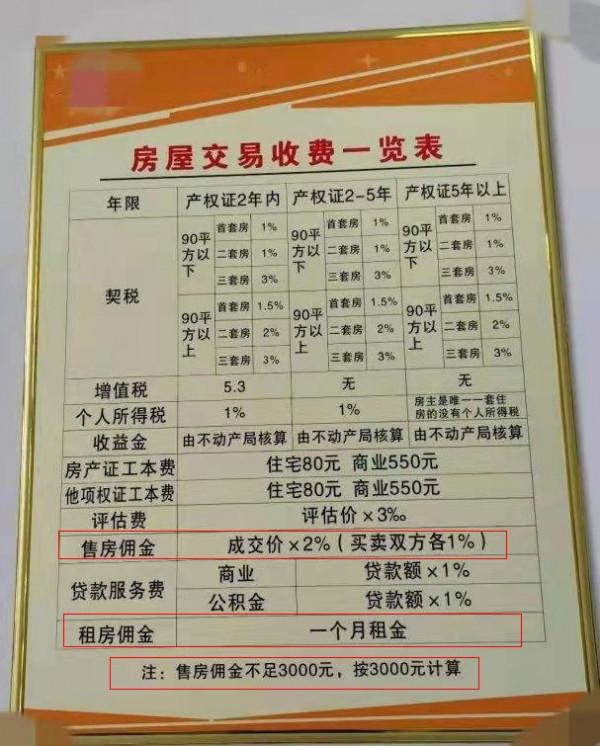 房屋交易收费一览表
年限 产权证2年内 产权证2-5年 产权证5年以上
契税
90平方以下 首套房 1% 90平方以下 首套房 1% 90平方以下 首套房 1%
二套房 1% 二套房 1% 二套房 1%
三套房 3% 三套房 3% 三套房 3%
90平方以上 首套房 1.5% 90平方以上 首套房 1.5% 90平方以上 首套房 1.5%
二套房 2% 二套房 2% 二套房 2%
三套房 3% 三套房 3% 三套房 3%
增值税 5.3 无 无
个人所得税 1% 1% 房主是唯一一套住房的没有个人所得税
收益金 由不动产局核算 由不动产局核算 由不动产局核算
房产证工本费 住宅80元 商业550元
他项权证工本费 住宅80元 商业550元
评估费 评估价×3‰
售房佣金 成交价×2%(买卖双方各1%)
贷款服务费 商业 贷款额×1%
公积金 贷款额×1%
租房佣金 一个月租金
注:售房佣金不足3000元,按3000元计算